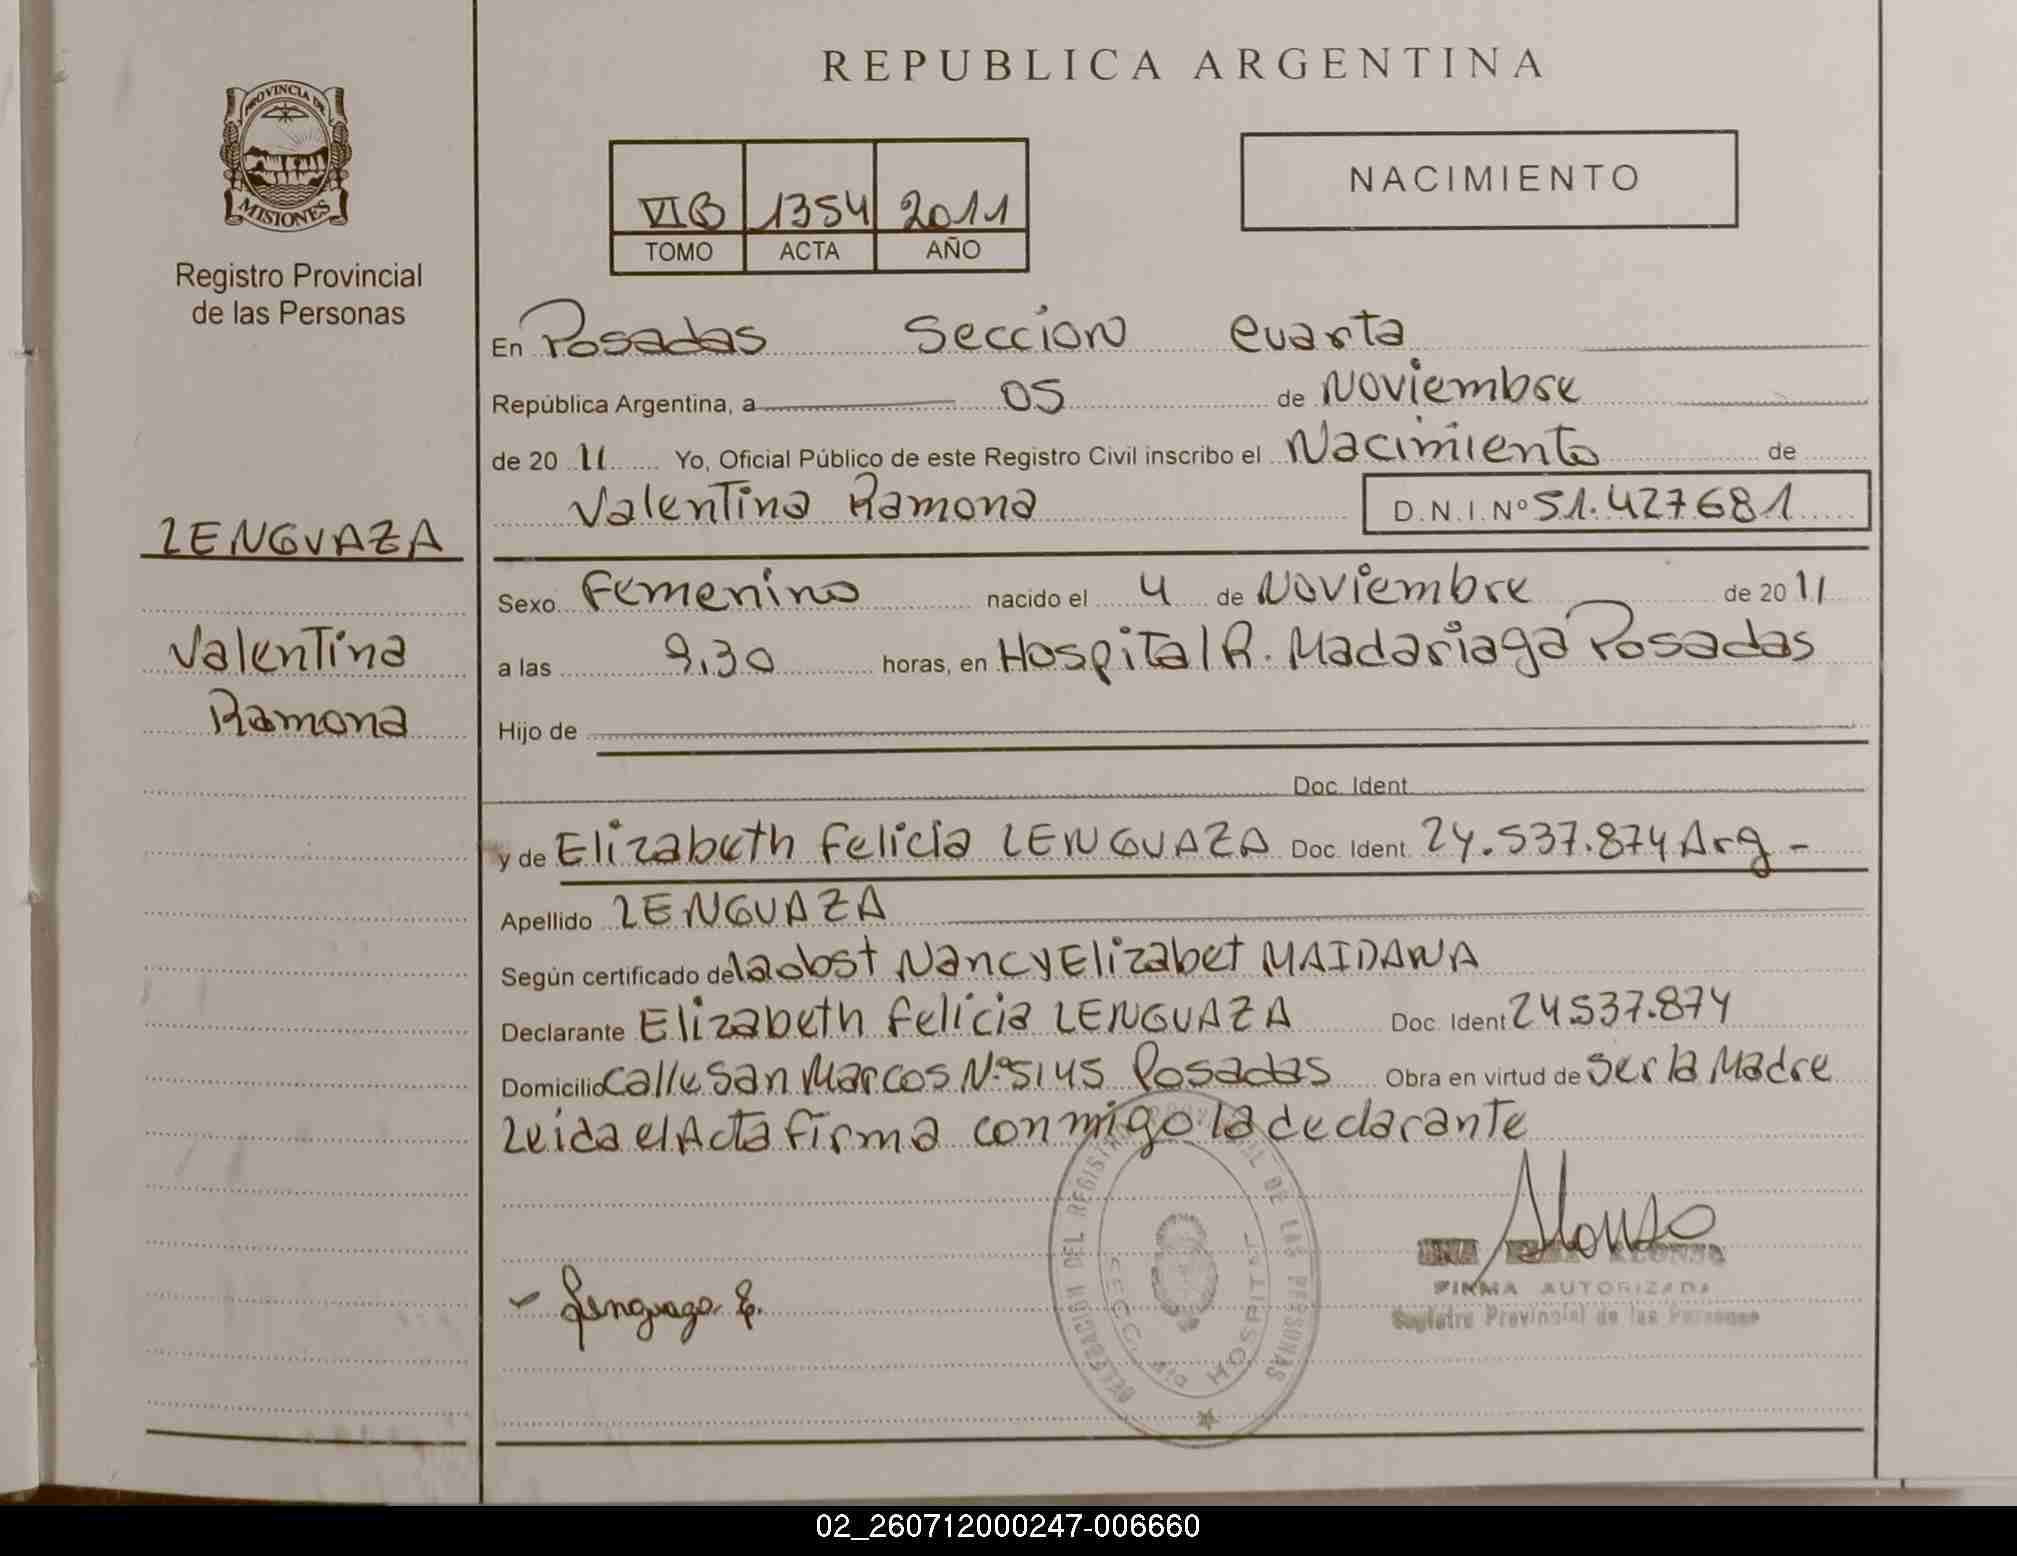 REPUBLICA ARGENTINA
PROVINCIA DE
MISIONES
Registro Provincial
de las Personas
NACIMIENTO
VIB 1354 2011
TOMO ACTA AÑO
En Posadas Seccion Cuarta
República Argentina, a 05 de Noviembre
de 20 11 Yo, Oficial Público de este Registro Civil inscribo el Nacimiento de
Valentina Ramona D.N.I. Nº 51.427681
LENGUAZA
Valentina
Ramona
Sexo Femenino nacido el 4 de Noviembre de 20 11
a las 9.30 horas, en Hospital R. Madariaga Posadas
Hijo de
Doc. Ident.
y de Elizabeth Felicia LENGUAZA Doc. Ident. 24.537.874 Arg -
Apellido LENGUAZA
Según certificado de la obst Nancy Elizabet MAIDANA
Declarante Elizabeth Felicia LENGUAZA Doc. Ident 24537.874
Domicilio Calle San Marcos Nº 5145 Posadas Obra en virtud de Ser la Madre
Leida el Acta firma conmigo la declarante
Alonso
ALONSO
FIRMA AUTORIZADA
Registro Provincial de las Personas
Lenguaza E.
DELEGACION DEL REGISTRO PROVINCIAL DE LAS PERSONAS
SECC. 4ta HOSPITAL
02_260712000247-006660